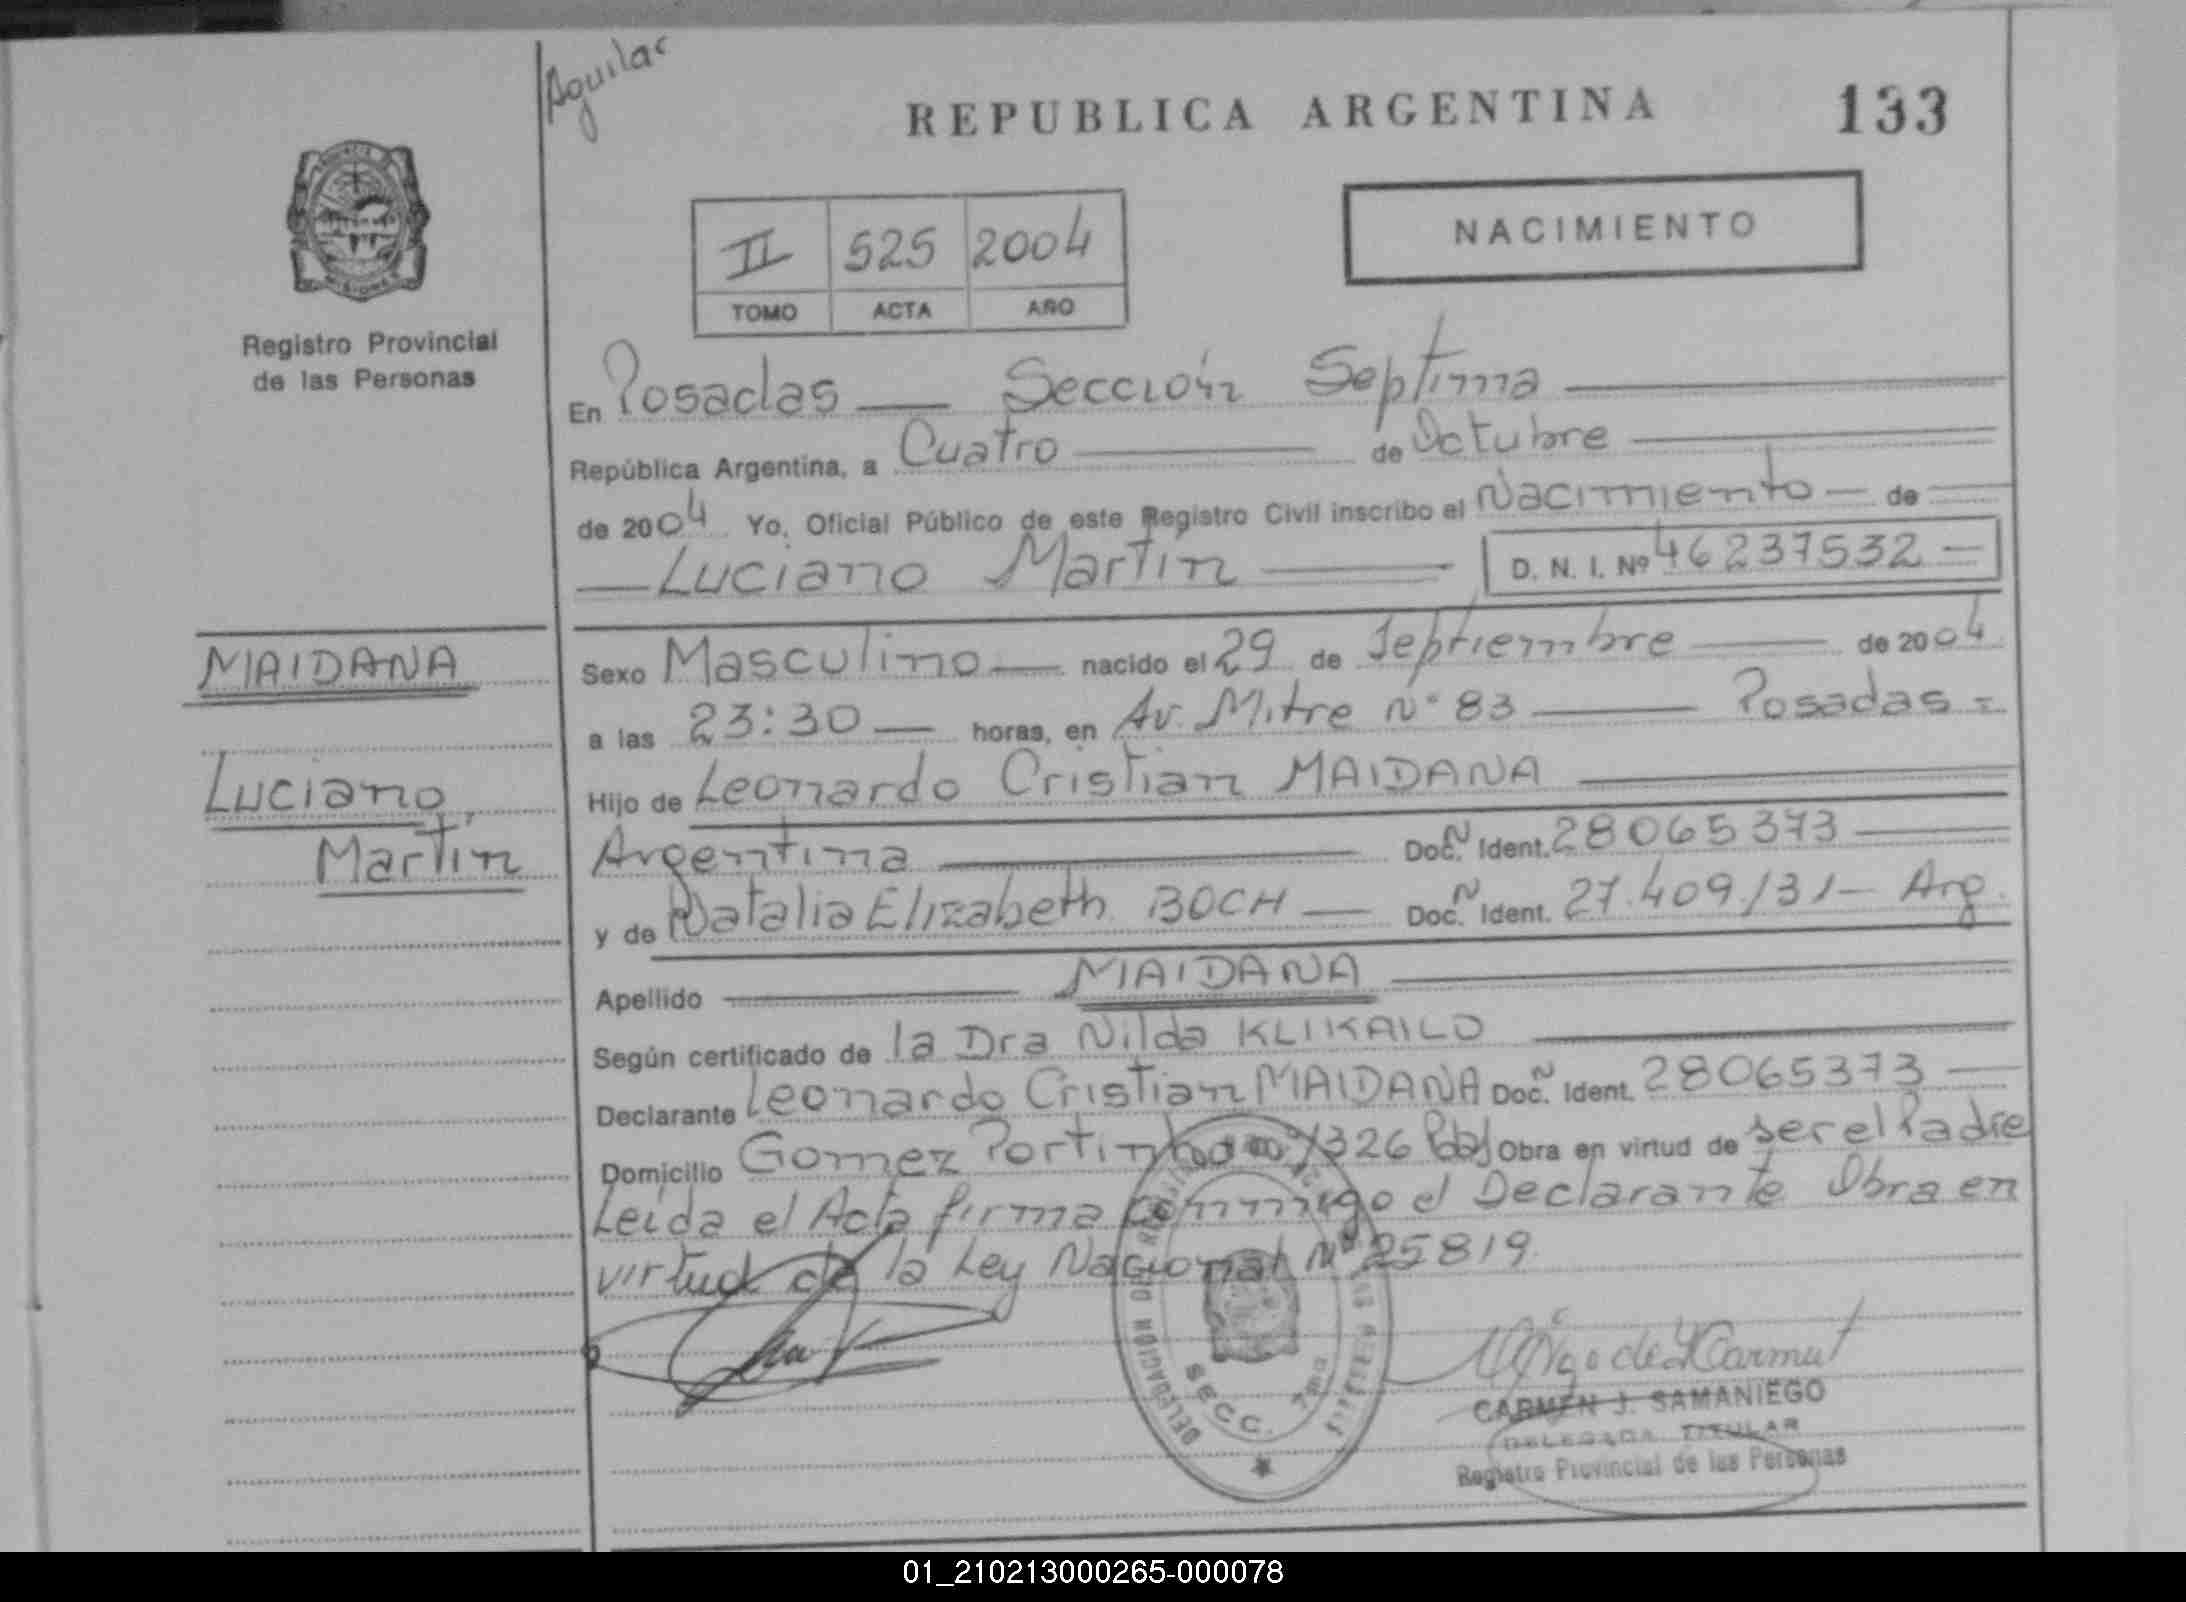 Aguilar
REPUBLICA ARGENTINA 133
NACIMIENTO
II 525 2004
TOMO ACTA AÑO
Registro Provincial
de las Personas
En Posadas — Sección Septima
República Argentina, a Cuatro de Octubre
de 2004 Yo, Oficial Público de este Registro Civil inscribo el Nacimiento — de
— Luciano Martín — D. N. I. Nº 46237532 —
MAIDANA
Luciano,
Martín
Sexo Masculino — nacido el 29 de Septiembre — de 2004
a las 23:30 — horas, en Av. Mitre Nº 83 — Posadas =
Hijo de Leonardo Cristian MAIDANA
Argentina — Doc. N Ident. 28065373 —
y de Natalia Elizabeth BOCH — Doc. N Ident. 27.409.131 — Arg.
Apellido — MAIDANA
Según certificado de la Dra Nilda KLIKAILO
Declarante Leonardo Cristian MAIDANA Doc. N Ident. 28065373 —
Domicilio Gomez Portinho nº 1326 Pdas Obra en virtud de ser el Padre
Leída el Acta firma conmigo el Declarante Obra en
virtud de la Ley Nacional Nº 25819
DELEGACION DEL REGISTRO
SECC. 7ma
CARMEN J. SAMANIEGO
DELEGADA TITULAR
Registro Provincial de las Personas
01_210213000265-000078